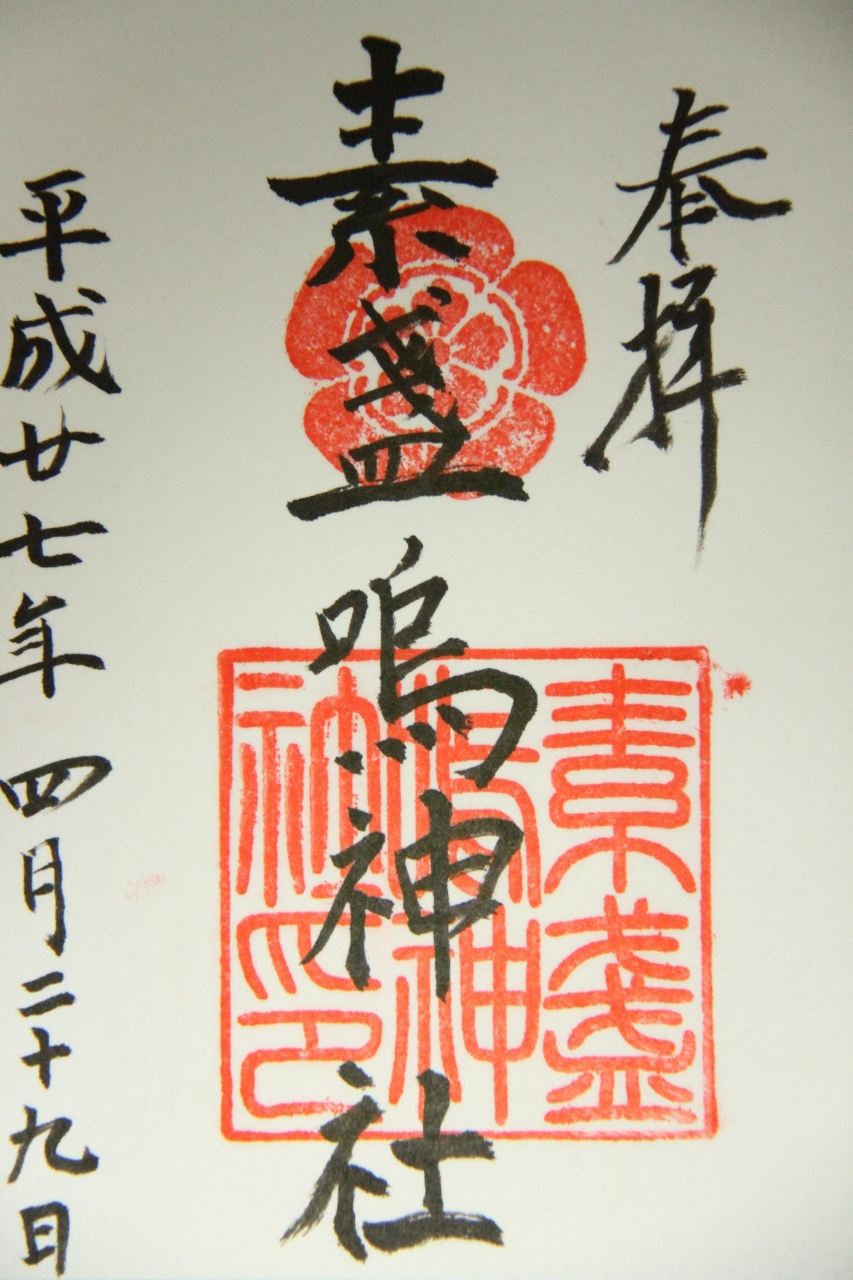 奉拝
素盞嗚神社
素盞嗚神社印
平成廿七年四月二十九日